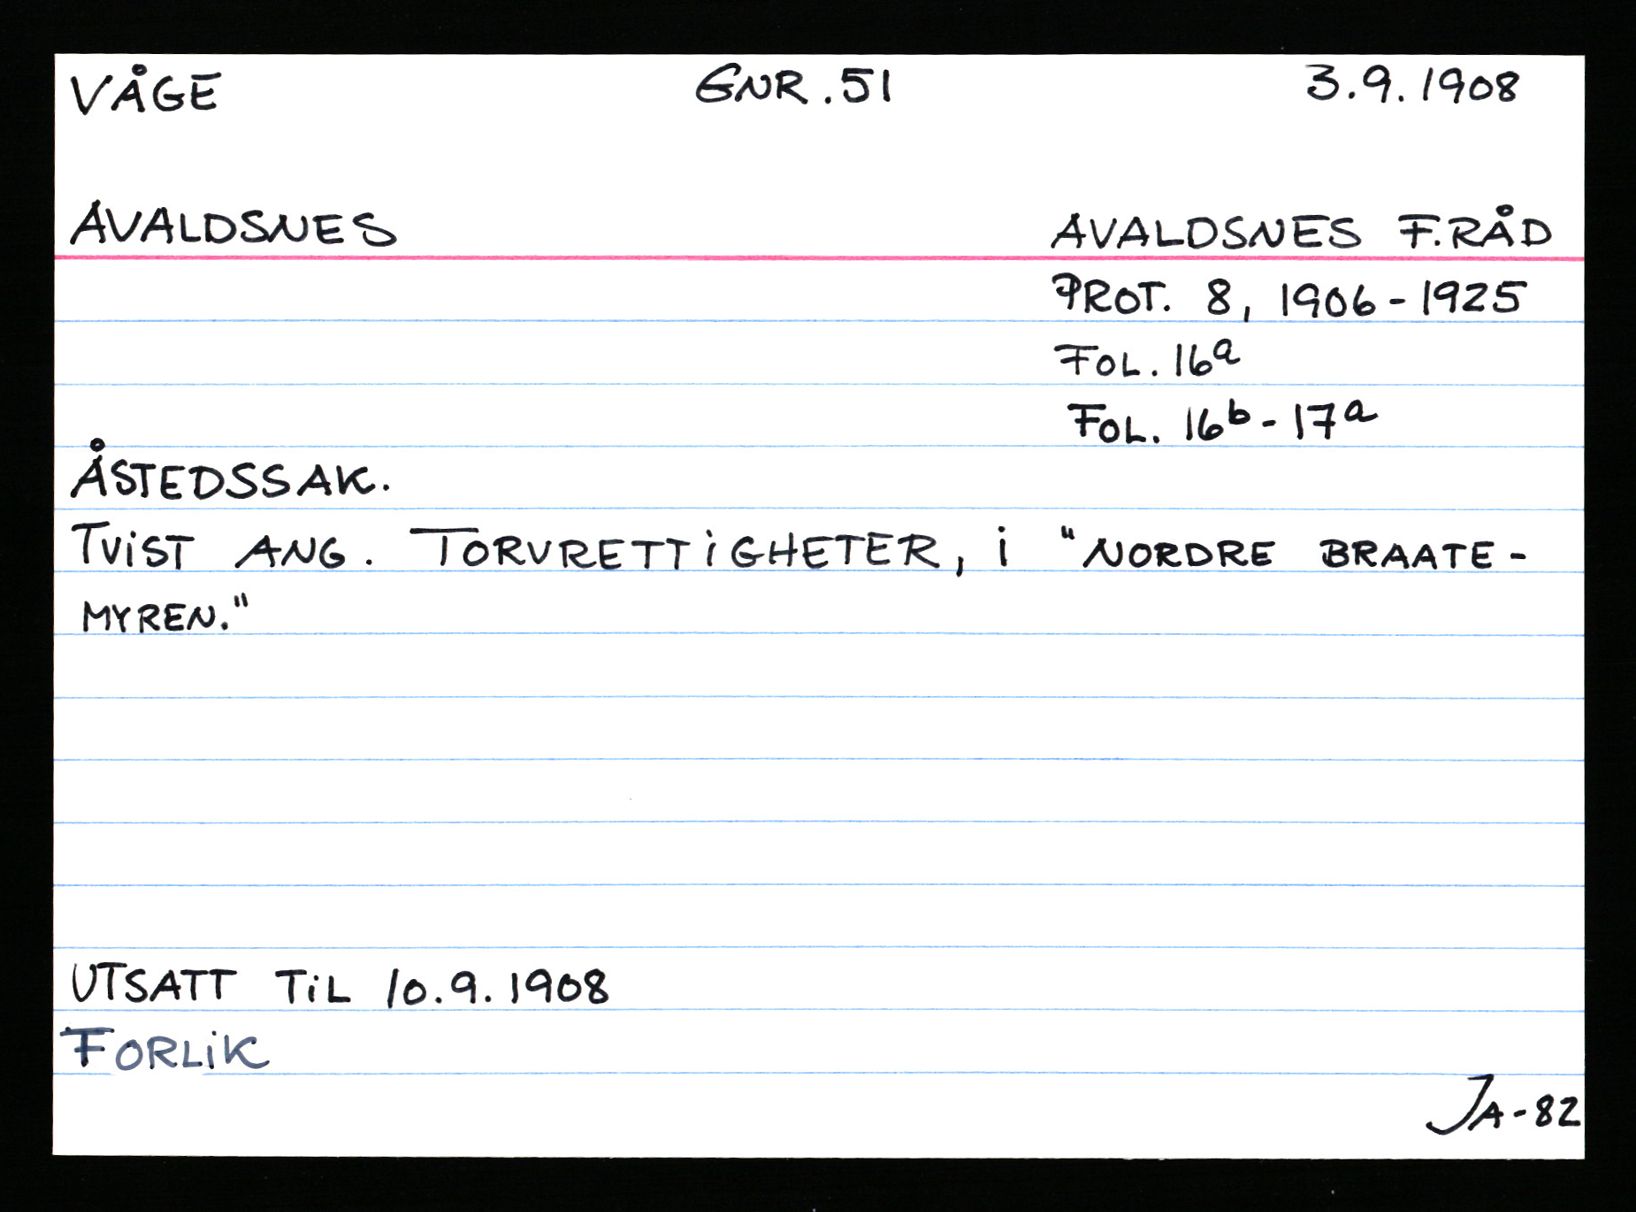 VÅGE GNR. 51 3.9.1908
AVALDSNES AVALDSNES F.RÅD
PROT. 8, 1906-1925
FOL. 16a
FOL. 16b-17a
ÅSTEDSSAK.
TViST ANG. TORVRETTiGHETER, i "NORDRE BRAATE-
MYREN."
UTSATT TiL 10.9.1908
FORLiK
JA-82